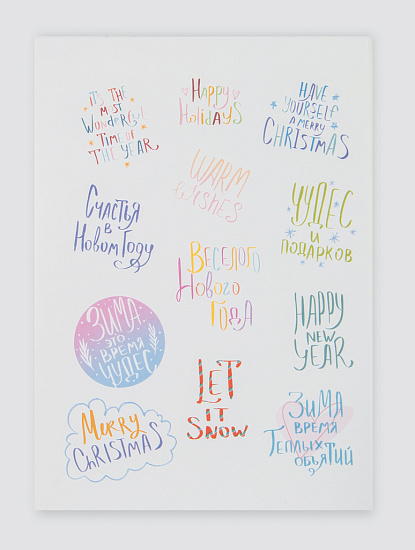 IT'S THE
MOST
WONDERFUL
TIME OF
THE YEAR
HAPPY
HOLIDAYS
HAVE
YOURSELF
A MERRY
CHRISTMAS
WARM
WISHES
СЧАСТЬЯ
В
НОВОМ ГОДУ
ЧУДЕС
И
ПОДАРКОВ
ВЕСЕЛОГО
НОВОГО
ГОДА
ЗИМА
ЭТО
ВРЕМЯ
ЧУДЕС
HAPPY
NEW
YEAR
LET
IT
SNOW
MERRY
CHRISTMAS
ЗИМА
ВРЕМЯ
ТЕПЛЫХ
ОБЪЯТИЙ